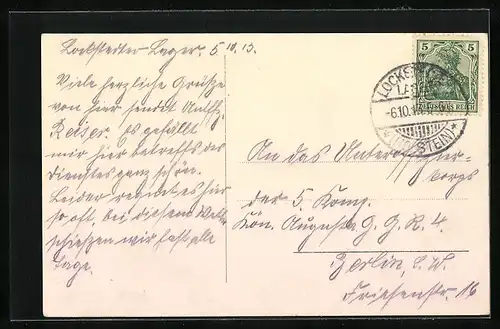 Lockstedter-Lager. 5.10.13.
Viele herzliche Grüße
von hier sendet Untffz.
Reiser. Es gefällt
mir hier betreffs des
Dienstes ganz schön.
Leider regnet es für
so oft, bei diesem
schießen wir fast alle
Tage.
5 5
DEUTSCHES REICH
LOCKSTEDTER
LAGER
-6.10.
*(HOLSTEIN)*
An das Unteroffizier-
korps
der 5. Komp.
Kön. Augusta G. G. R. 4.
Berlin, S. W.
Friesenstr. 16